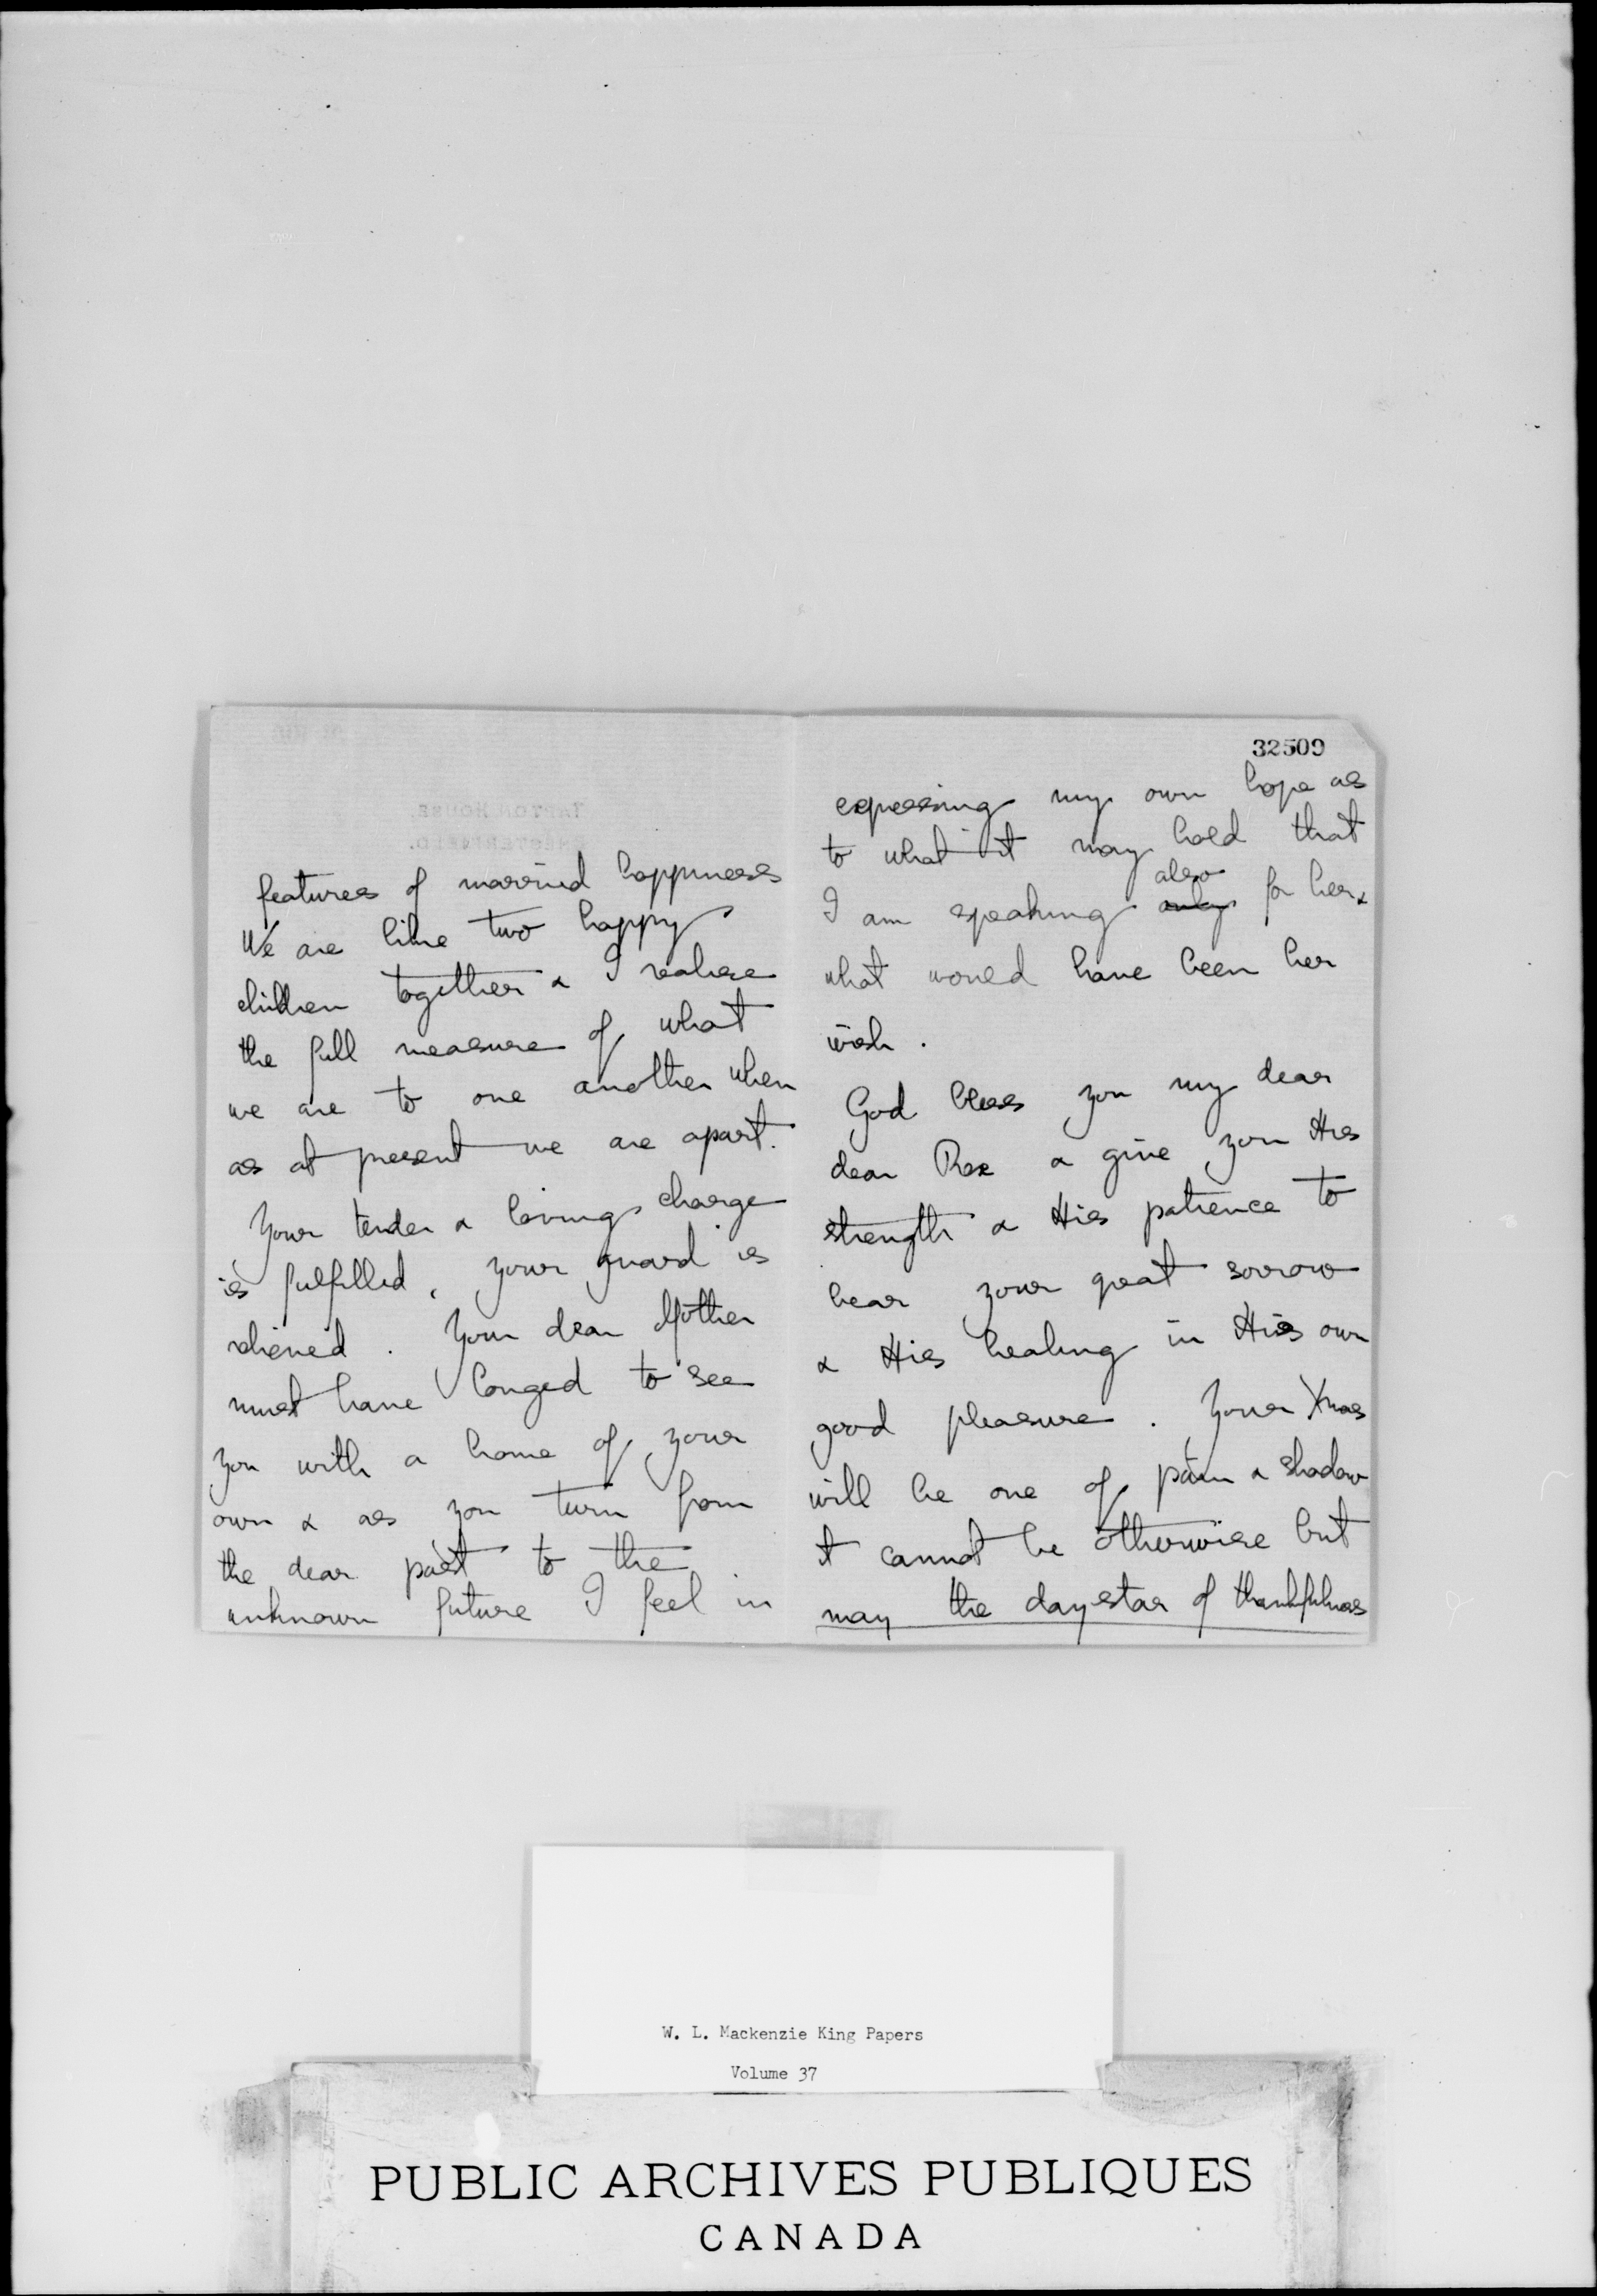 TAPTON HOUSE,
CHESTERFIELD.
features of married happiness
We are like two happy
children together & I realise
the full measure of what
we are to one another when
as at present we are apart.
Your tender & loving charge
is fulfilled, your guard is
relieved. Your dear Mother
must have longed to see
you with a home of your
own & as you turn from
the dear past to the
unknown future I feel in
32509
expressing my own hope as
to what it may hold that
also
I am speaking only for her &
what would have been her
wish.
God bless you my dear
dear Rex & give you His
strength & His patience to
bear your great sorrow
& His healing in His own
good pleasure. Your Xmas
will be one of pain & shadow
it cannot be otherwise but
may the daystar of thankfulness
W. L. Mackenzie King Papers
Volume 37
PUBLIC ARCHIVES PUBLIQUES
CANADA